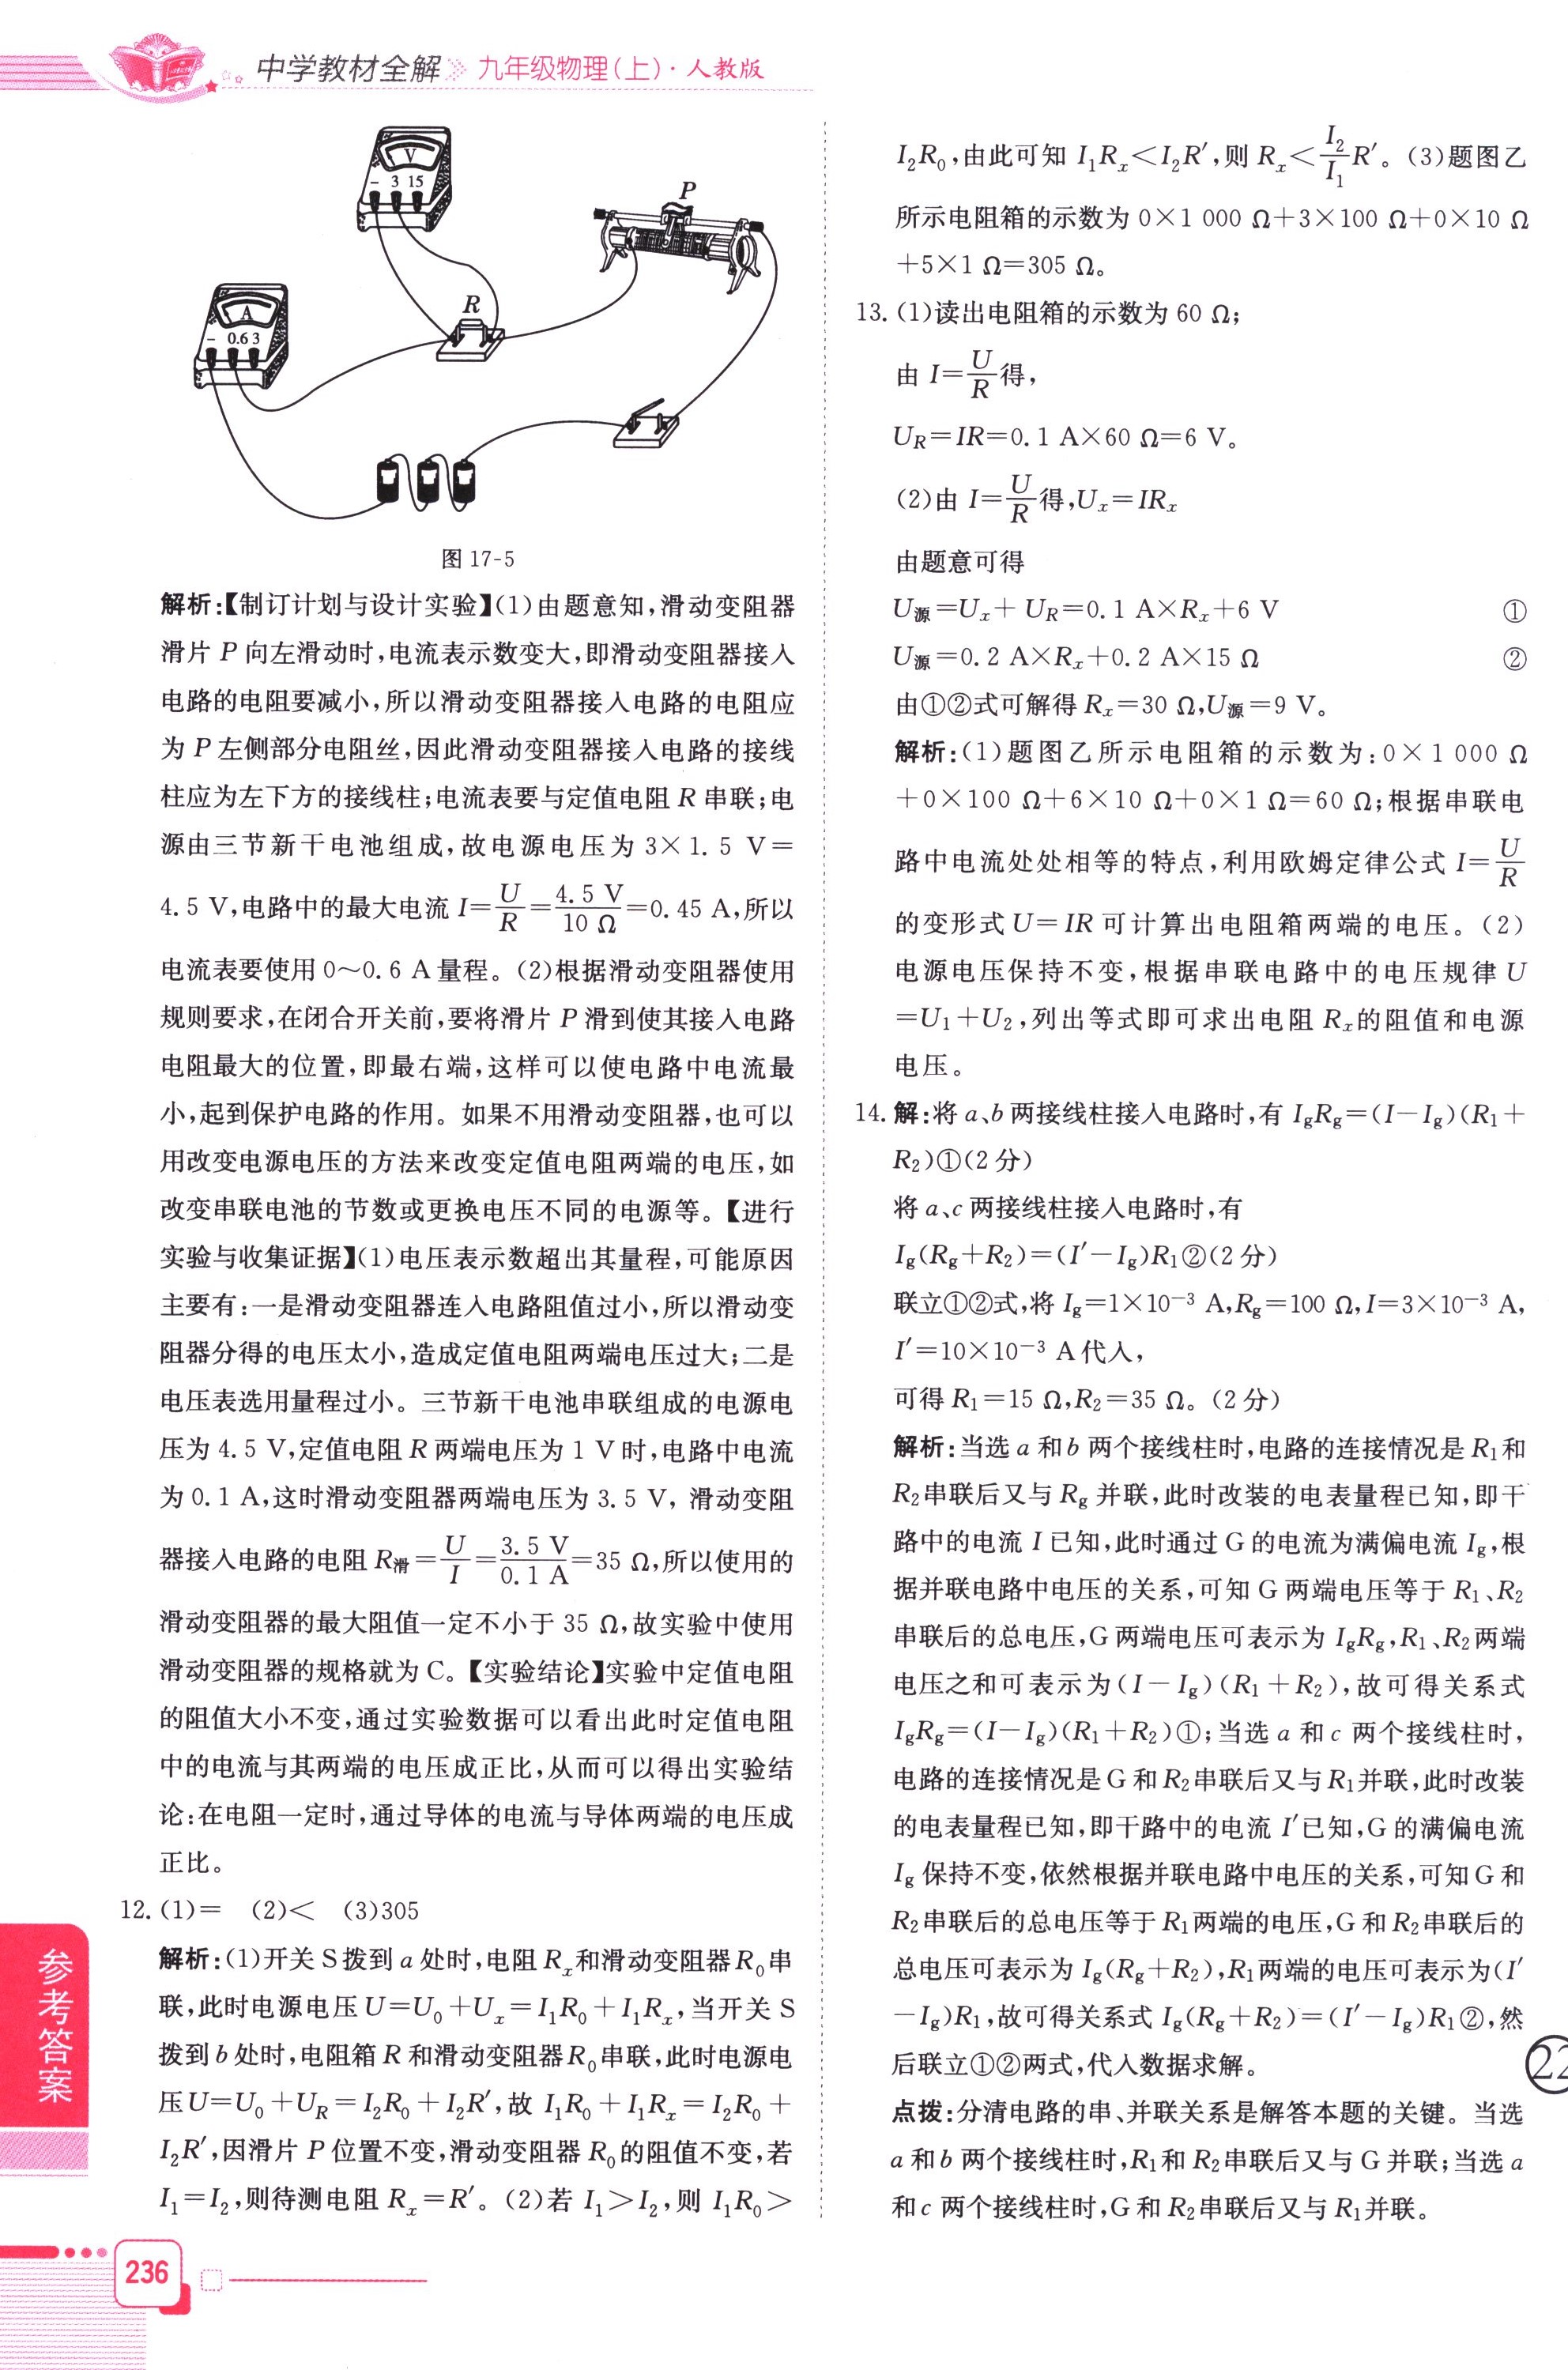 中学教材全解 九年级物理(上)·人教版
V
- 3 15
P
R
A
- 0.6 3
图 17-5
解析:【制订计划与设计实验】(1)由题意知,滑动变阻器
滑片 P 向左滑动时,电流表示数变大,即滑动变阻器接入
电路的电阻要减小,所以滑动变阻器接入电路的电阻应
为 P 左侧部分电阻丝,因此滑动变阻器接入电路的接线
柱应为左下方的接线柱;电流表要与定值电阻 R 串联;电
源由三节新干电池组成,故电源电压为 3×1.5 V=
4.5 V,电路中的最大电流 I=U/R=4.5 V/10 Ω=0.45 A,所以
电流表要使用 0～0.6 A 量程。(2)根据滑动变阻器使用
规则要求,在闭合开关前,要将滑片 P 滑到使其接入电路
电阻最大的位置,即最右端,这样可以使电路中电流最
小,起到保护电路的作用。如果不用滑动变阻器,也可以
用改变电源电压的方法来改变定值电阻两端的电压,如
改变串联电池的节数或更换电压不同的电源等。【进行
实验与收集证据】(1)电压表示数超出其量程,可能原因
主要有:一是滑动变阻器连入电路阻值过小,所以滑动变
阻器分得的电压太小,造成定值电阻两端电压过大;二是
电压表选用量程过小。三节新干电池串联组成的电源电
压为 4.5 V,定值电阻 R 两端电压为 1 V 时,电路中电流
为 0.1 A,这时滑动变阻器两端电压为 3.5 V, 滑动变阻
器接入电路的电阻 R滑=U/I=3.5 V/0.1 A=35 Ω,所以使用的
滑动变阻器的最大阻值一定不小于 35 Ω,故实验中使用
滑动变阻器的规格就为 C。【实验结论】实验中定值电阻
的阻值大小不变,通过实验数据可以看出此时定值电阻
中的电流与其两端的电压成正比,从而可以得出实验结
论:在电阻一定时,通过导体的电流与导体两端的电压成
正比。
12. (1)= (2)< (3)305
解析:(1)开关 S 拨到 a 处时,电阻 Rₓ和滑动变阻器 R₀串
联,此时电源电压 U=U₀+Uₓ=I₁R₀+I₁Rₓ,当开关 S
拨到 b 处时,电阻箱 R 和滑动变阻器 R₀串联,此时电源电
压 U=U₀+U_R=I₂R₀+I₂R′,故 I₁R₀+I₁Rₓ=I₂R₀+
I₂R′,因滑片 P 位置不变,滑动变阻器 R₀的阻值不变,若
I₁=I₂,则待测电阻 Rₓ=R′。(2)若 I₁>I₂,则 I₁R₀>
I₂R₀,由此可知 I₁Rₓ<I₂R′,则 Rₓ<I₂/I₁R′。(3)题图乙
所示电阻箱的示数为 0×1 000 Ω+3×100 Ω+0×10 Ω
+5×1 Ω=305 Ω。
13. (1)读出电阻箱的示数为 60 Ω;
由 I=U/R得,
U_R=IR=0.1 A×60 Ω=6 V。
(2)由 I=U/R得,Uₓ=IRₓ
由题意可得
U源=Uₓ+U_R=0.1 A×Rₓ+6 V ①
U源=0.2 A×Rₓ+0.2 A×15 Ω ②
由①②式可解得 Rₓ=30 Ω,U源=9 V。
解析:(1)题图乙所示电阻箱的示数为:0×1 000 Ω
+0×100 Ω+6×10 Ω+0×1 Ω=60 Ω;根据串联电
路中电流处处相等的特点,利用欧姆定律公式 I=U/R
的变形式 U=IR 可计算出电阻箱两端的电压。(2)
电源电压保持不变,根据串联电路中的电压规律 U
=U₁+U₂,列出等式即可求出电阻 Rₓ的阻值和电源
电压。
14. 解:将 a、b 两接线柱接入电路时,有 I_gR_g=(I-I_g)(R₁+
R₂)①(2 分)
将 a、c 两接线柱接入电路时,有
I_g(R_g+R₂)=(I′-I_g)R₁②(2 分)
联立①②式,将 I_g=1×10⁻³ A,R_g=100 Ω,I=3×10⁻³ A,
I′=10×10⁻³ A代入,
可得 R₁=15 Ω,R₂=35 Ω。(2 分)
解析:当选 a 和 b 两个接线柱时,电路的连接情况是 R₁和
R₂串联后又与 R_g 并联,此时改装的电表量程已知,即干
路中的电流 I 已知,此时通过 G 的电流为满偏电流 I_g,根
据并联电路中电压的关系,可知 G 两端电压等于 R₁、R₂
串联后的总电压,G 两端电压可表示为 I_gR_g,R₁、R₂两端
电压之和可表示为(I-I_g)(R₁+R₂),故可得关系式
I_gR_g=(I-I_g)(R₁+R₂)①;当选 a 和 c 两个接线柱时,
电路的连接情况是 G 和 R₂串联后又与 R₁并联,此时改装
的电表量程已知,即干路中的电流 I′已知,G 的满偏电流
I_g 保持不变,依然根据并联电路中电压的关系,可知 G 和
R₂串联后的总电压等于 R₁两端的电压,G 和 R₂串联后的
总电压可表示为 I_g(R_g+R₂),R₁两端的电压可表示为(I′
-I_g)R₁,故可得关系式 I_g(R_g+R₂)=(I′-I_g)R₁②,然
后联立①②两式,代入数据求解。
点拨:分清电路的串、并联关系是解答本题的关键。当选
a 和 b 两个接线柱时,R₁和 R₂串联后又与 G 并联;当选 a
和 c 两个接线柱时,G 和 R₂串联后又与 R₁并联。
参考答案
22
236